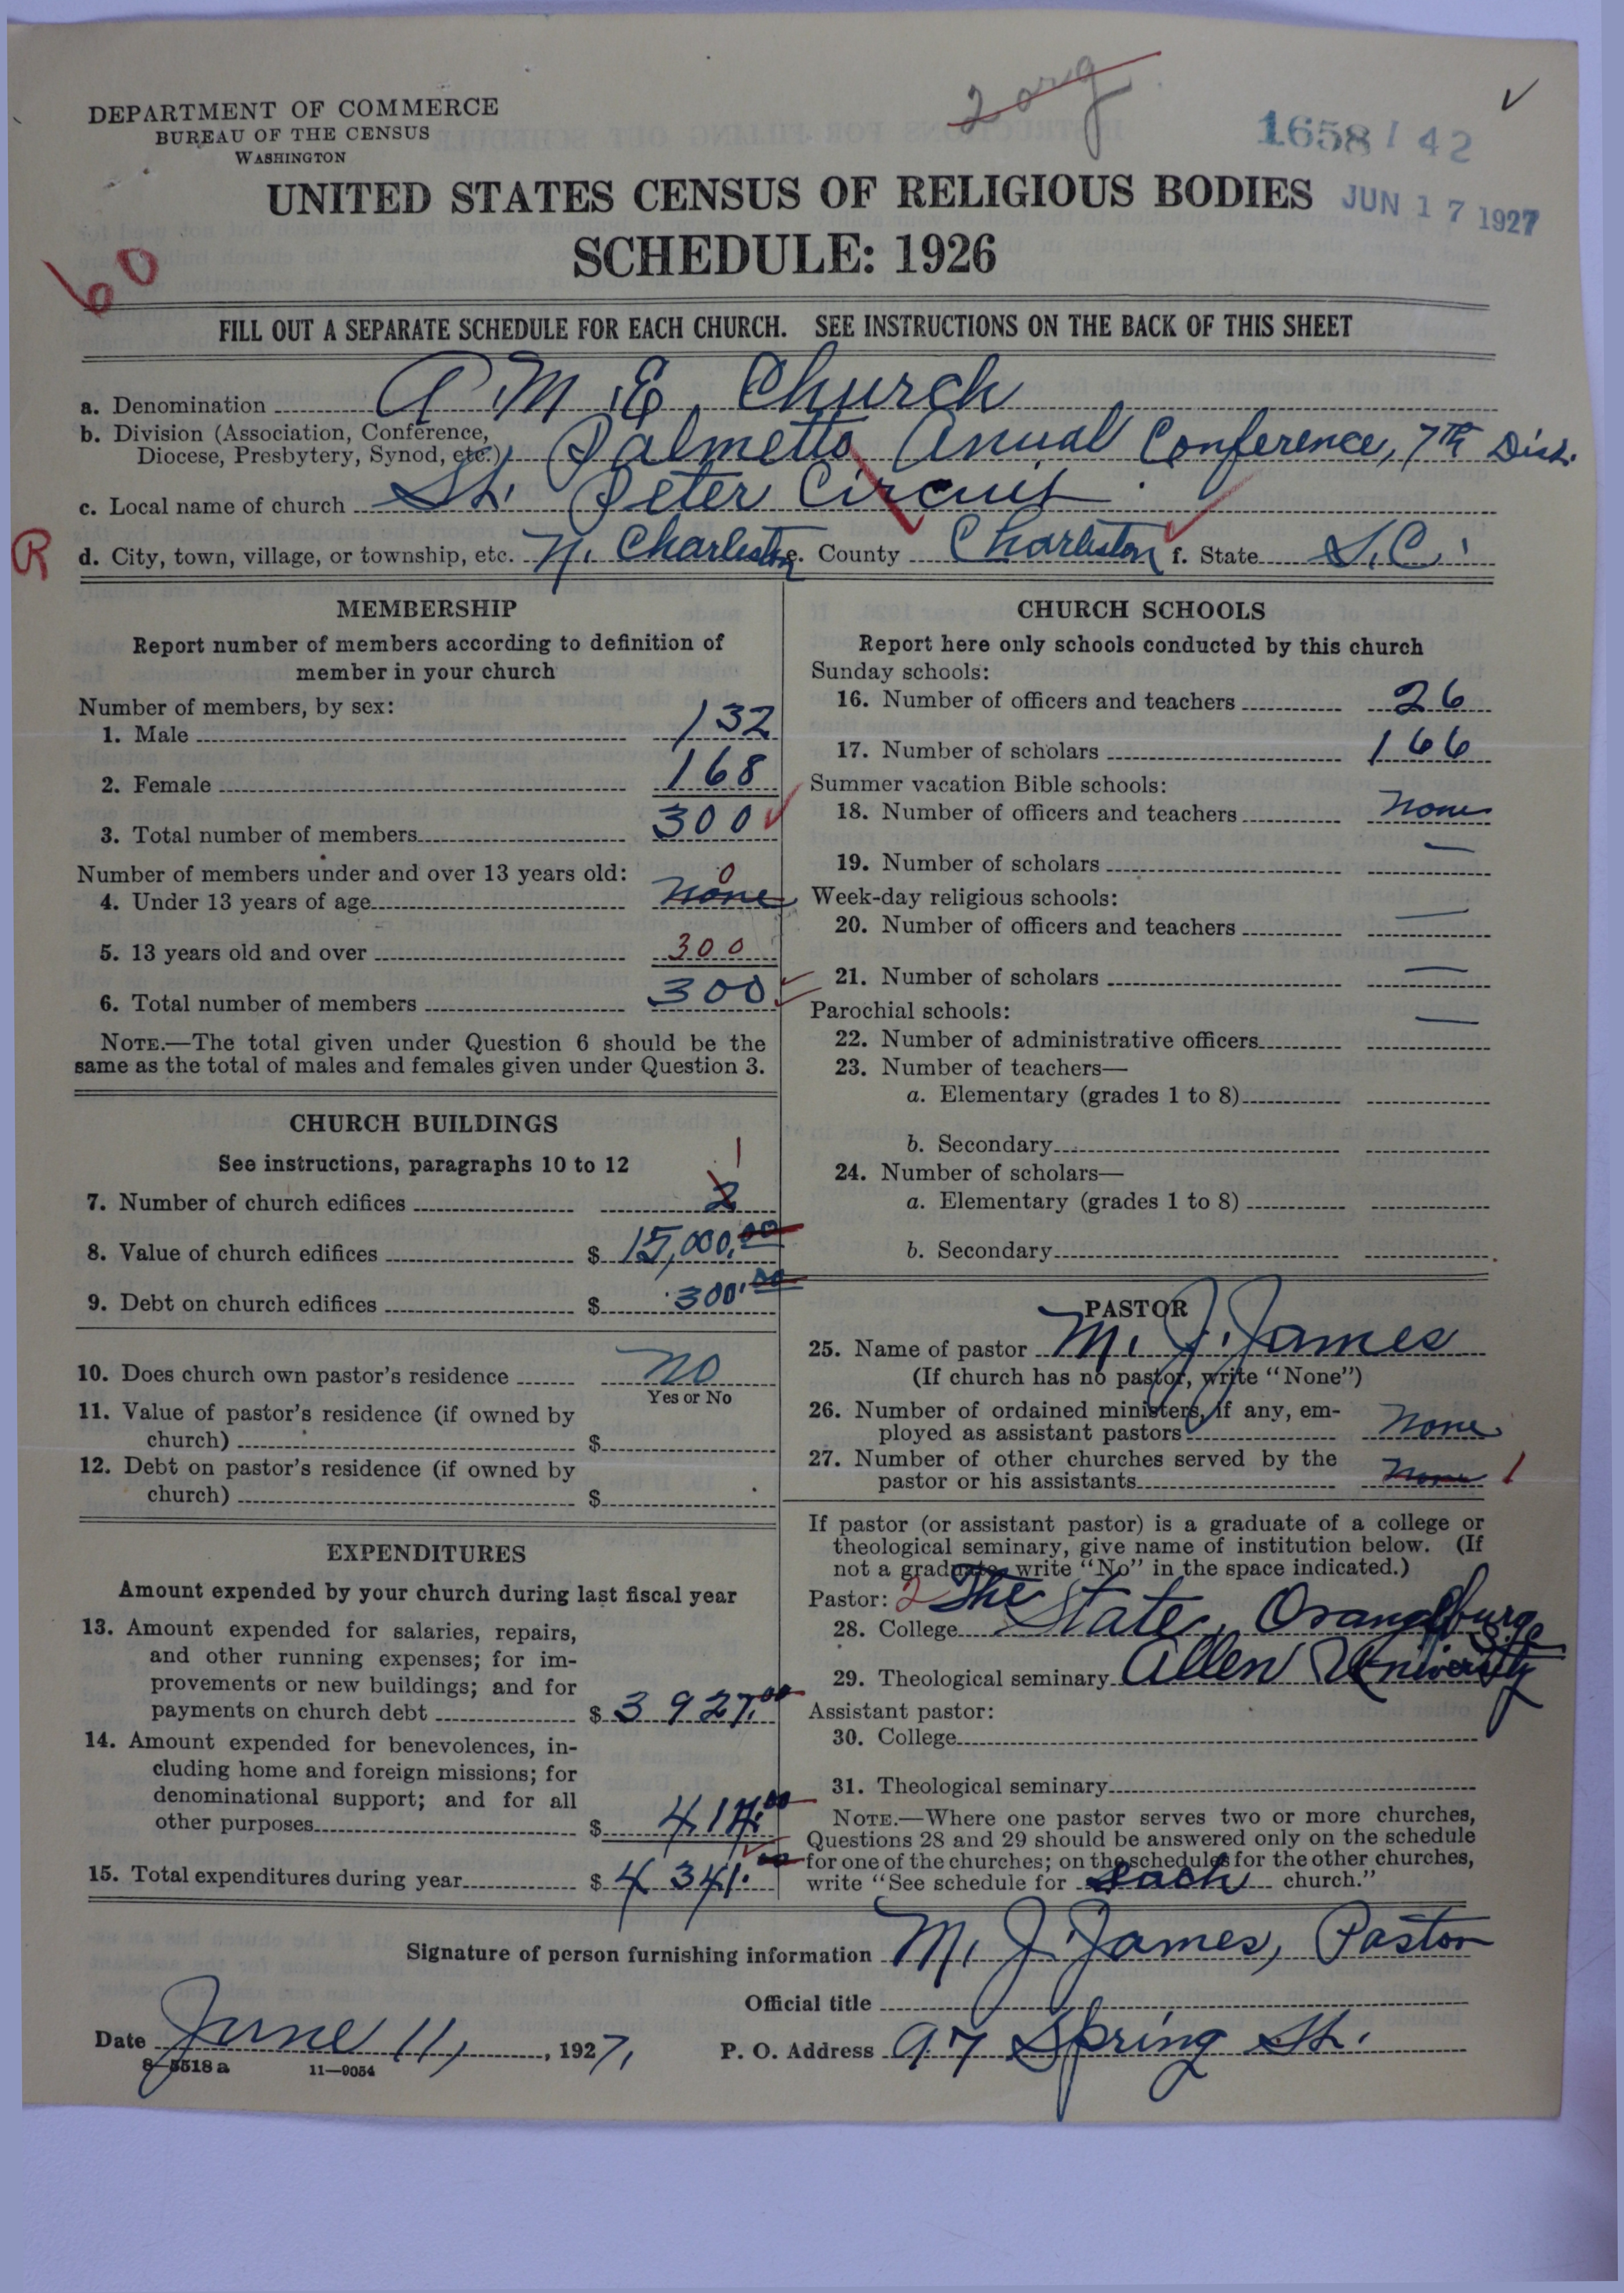 2 org
✓
DEPARTMENT OF COMMERCE
BUREAU OF THE CENSUS
WASHINGTON
1658142
UNITED STATES CENSUS OF RELIGIOUS BODIES
JUN 17 1927
SCHEDULE: 1926
60
FILL OUT A SEPARATE SCHEDULE FOR EACH CHURCH. SEE INSTRUCTIONS ON THE BACK OF THIS SHEET
a. Denomination A. M. E. Church
b. Division (Association, Conference,
Diocese, Presbytery, Synod, etc.) Palmetto Anual Conference, 7th Dist.
c. Local name of church St. Peter Circuit
R
d. City, town, village, or township, etc. N. Charleston e. County Charleston f. State S.C.
MEMBERSHIP
Report number of members according to definition of
member in your church
Number of members, by sex:
1. Male 132
2. Female 168
3. Total number of members 300
Number of members under and over 13 years old:
0
4. Under 13 years of age none
5. 13 years old and over 300
6. Total number of members 300
NOTE.—The total given under Question 6 should be the
same as the total of males and females given under Question 3.
CHURCH BUILDINGS
See instructions, paragraphs 10 to 12
1
7. Number of church edifices 2
8. Value of church edifices $ 15,000.00
9. Debt on church edifices $ 300.00
10. Does church own pastor's residence no
Yes or No
11. Value of pastor's residence (if owned by
church) $
12. Debt on pastor's residence (if owned by
church) $
EXPENDITURES
Amount expended by your church during last fiscal year
13. Amount expended for salaries, repairs,
and other running expenses; for im-
provements or new buildings; and for
payments on church debt $ 3927.00
14. Amount expended for benevolences, in-
cluding home and foreign missions; for
denominational support; and for all
other purposes $ 414.00
15. Total expenditures during year $ 4341.00
CHURCH SCHOOLS
Report here only schools conducted by this church
Sunday schools:
16. Number of officers and teachers 26
17. Number of scholars 166
Summer vacation Bible schools:
18. Number of officers and teachers none
19. Number of scholars —
Week-day religious schools:
20. Number of officers and teachers —
21. Number of scholars —
Parochial schools:
22. Number of administrative officers —
23. Number of teachers—
a. Elementary (grades 1 to 8)
b. Secondary
24. Number of scholars—
a. Elementary (grades 1 to 8)
b. Secondary
PASTOR
25. Name of pastor M. J. James
(If church has no pastor, write "None")
26. Number of ordained ministers, if any, em-
ployed as assistant pastors None
27. Number of other churches served by the
pastor or his assistants None 1
If pastor (or assistant pastor) is a graduate of a college or
theological seminary, give name of institution below. (If
not a graduate, write "No" in the space indicated.)
Pastor: 2
28. College The State, Orangeburg
29. Theological seminary Allen University
Assistant pastor:
30. College
31. Theological seminary
NOTE.—Where one pastor serves two or more churches,
Questions 28 and 29 should be answered only on the schedule
for one of the churches; on the schedules for the other churches,
write "See schedule for each church."
Signature of person furnishing information M. J. James, Pastor
Official title
Date June 11, 1927.
P. O. Address 97 Spring St.
8—5518a
11—9054